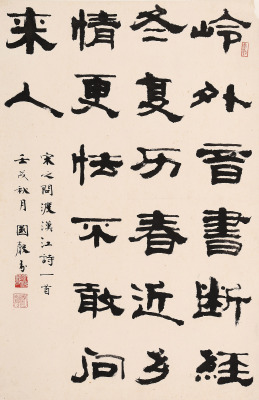 岭外音書断經
冬复历春近乡
情更怯不敢问
来人
宋之問渡漢江詩一首
壬戌秋月國